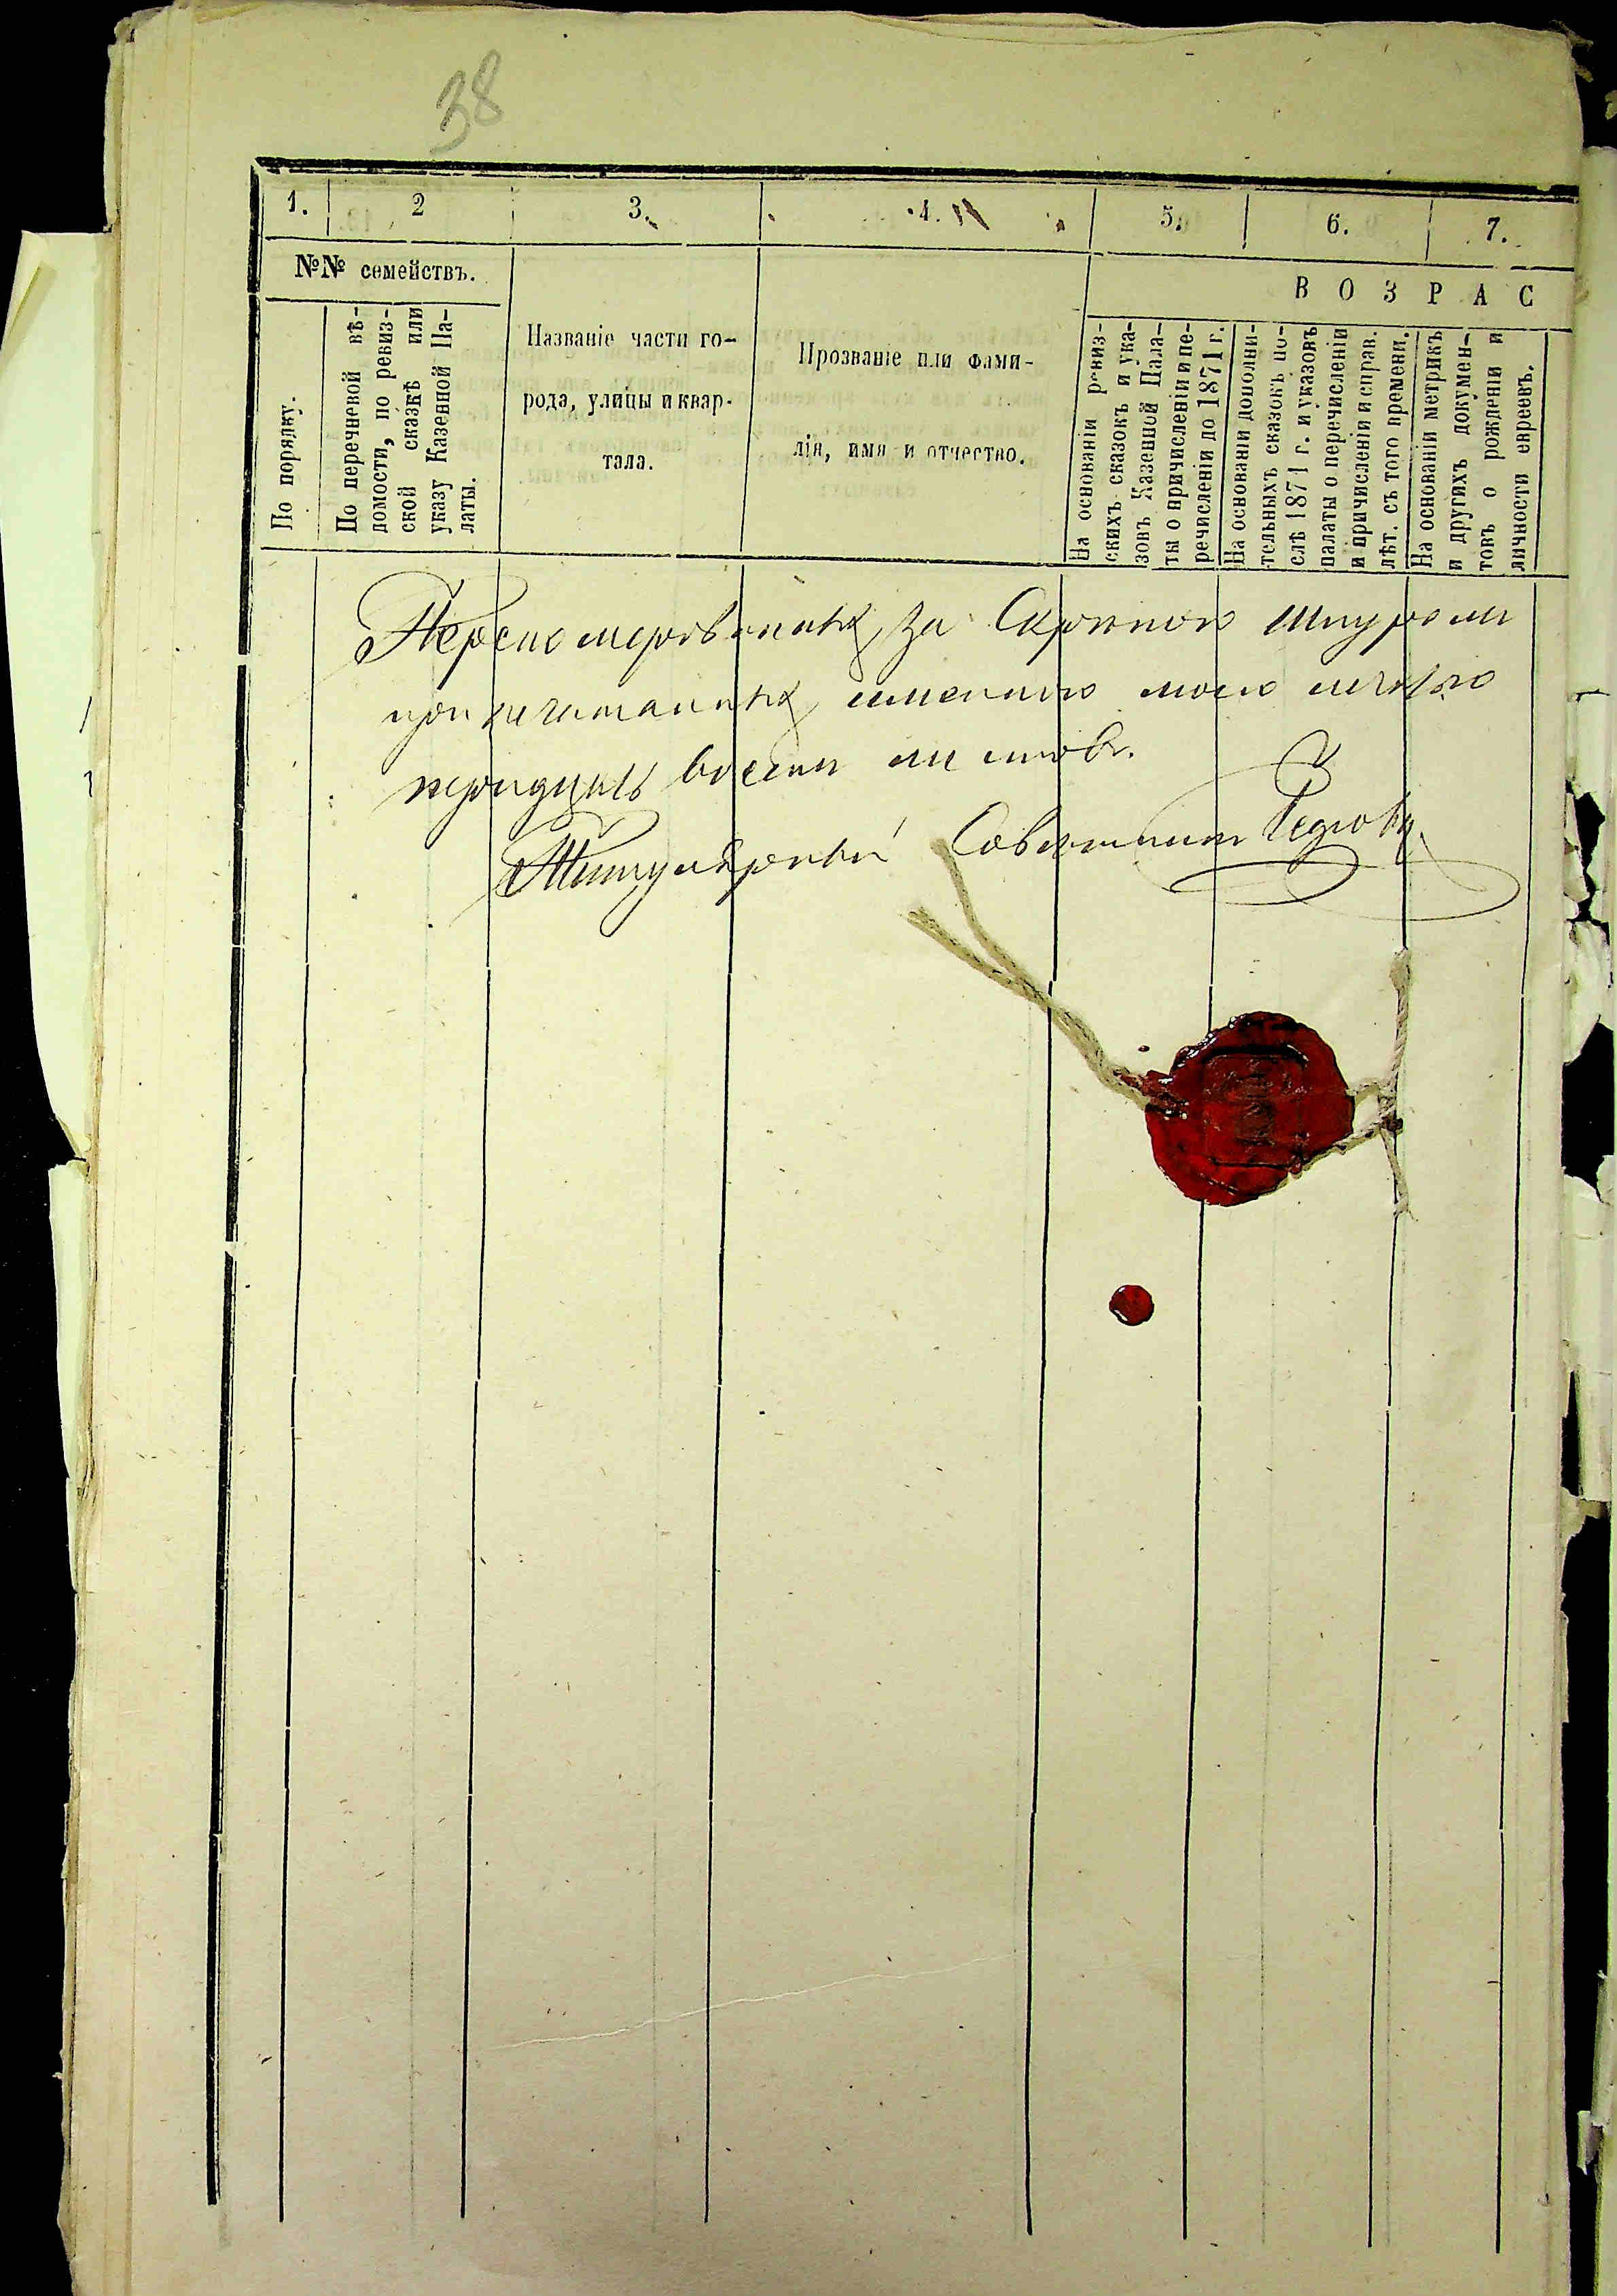 38
1. 2 3. 4. 5. 6. 7.
№№ семействъ.
По порядку.
По перечневой вѣ-
домости, по ревиз-
ской сказкѣ или
указу Казенной Па-
латы.
Названіе части го-
рода, улицы и квар-
тала.
Прозваніе или фами-
лія, имя и отчество.
В О З Р А С
На основаніи ревиз-
скихъ сказокъ и ука-
зовъ Казенной Пала-
ты о причисленіи и пе-
речисленіи до 1871 г.
На основани дополни-
тельныхъ сказокъ по-
слѣ 1871 г. и указовъ
палаты о перечисленіи
и причисленіи и справ.
лѣт. съ того времени.
На основаніи метрикъ
и другихъ докумен-
товъ о рожденіи и
личности евреевъ.
Перенумерованныхъ, за скрѣпою шнуромъ
припечатанныхъ, именною моею печатью
тридцать восемь листовъ.
Титулярный Совѣтникъ